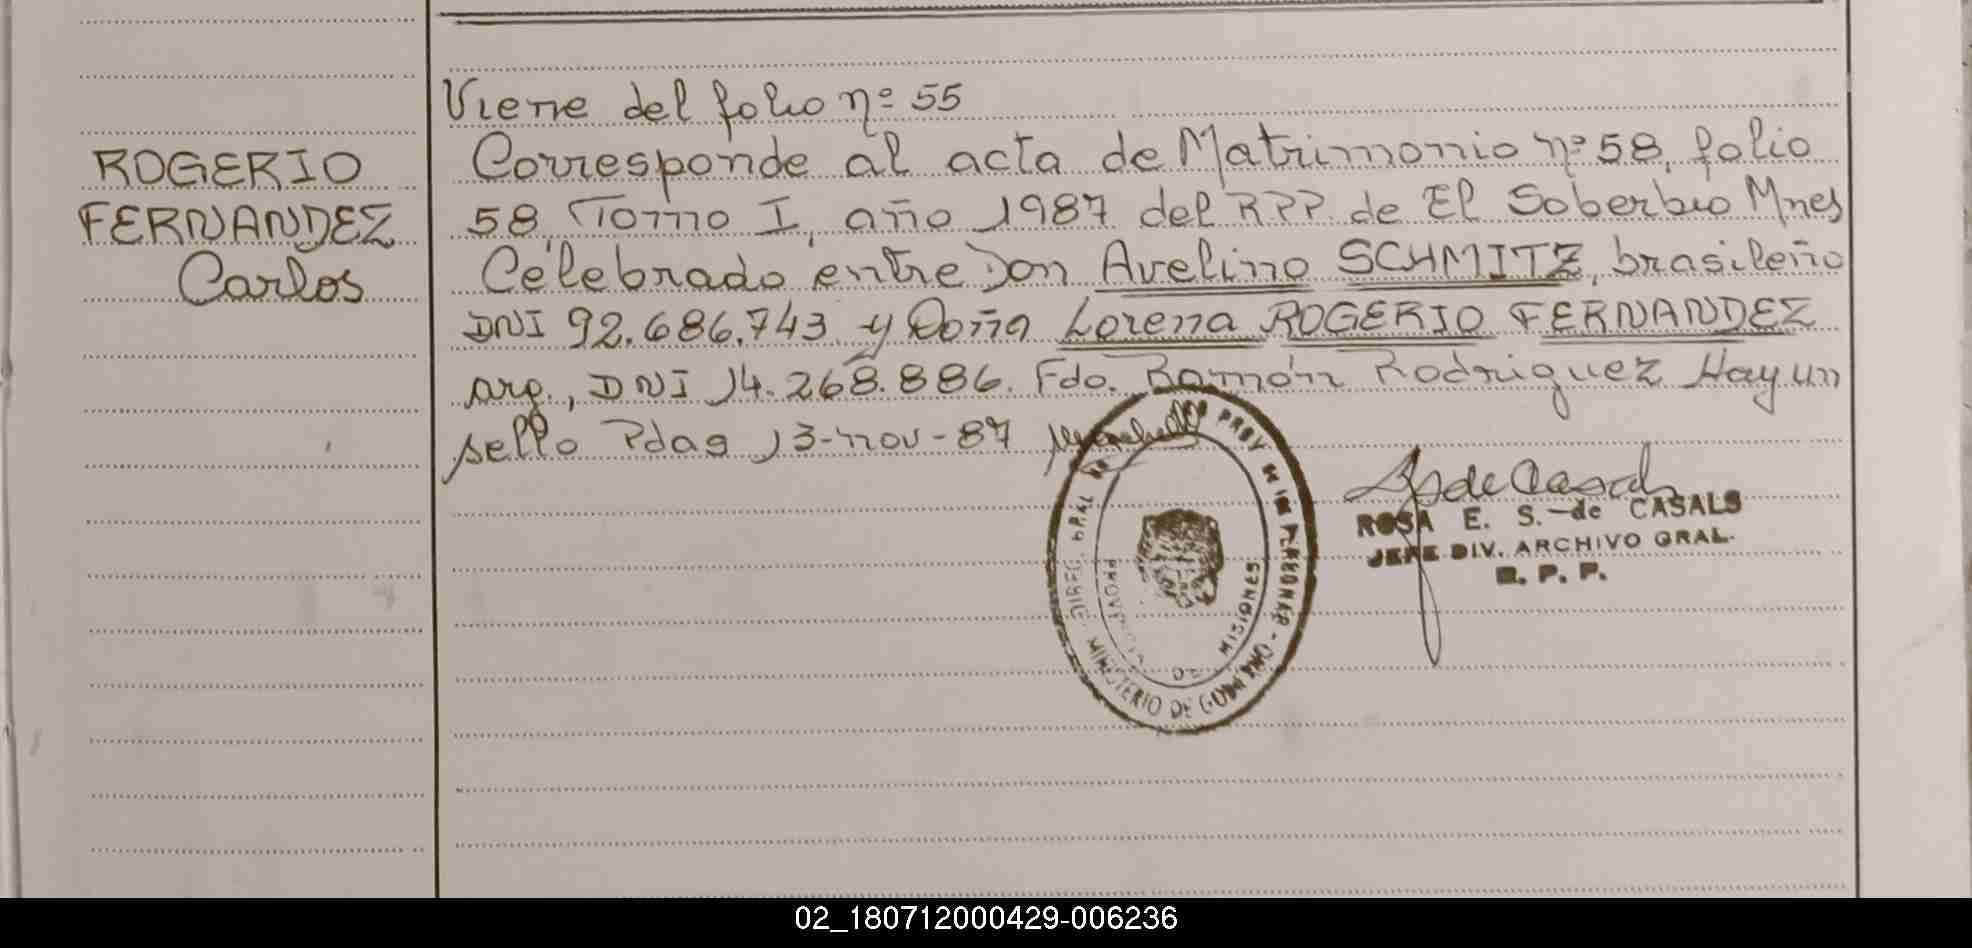 Viene del folio nº 55
ROGERIO
FERNANDEZ
Carlos
Corresponde al acta de Matrimonio nº 58, folio
58, Tomo I, año 1987 del RPP. de El Soberbio Mnes
Celebrado entre Don Avelino SCHMITZ, brasileño
DNI 92.686.743 y Doña Lorena ROGERIO FERNANDEZ
arg., DNI 14.268.886. Fdo. Ramón Rodriguez Hay un
sello Pdas 13-nov-87
DIREC. GRAL. PROV. DE LAS PERSONAS
MINISTERIO DE GOBIERNO
PROVINCIA DE MISIONES
S de Casals
ROSA E. S. de CASALS
JEFE DIV. ARCHIVO GRAL.
R. P. P.
02_180712000429-006236